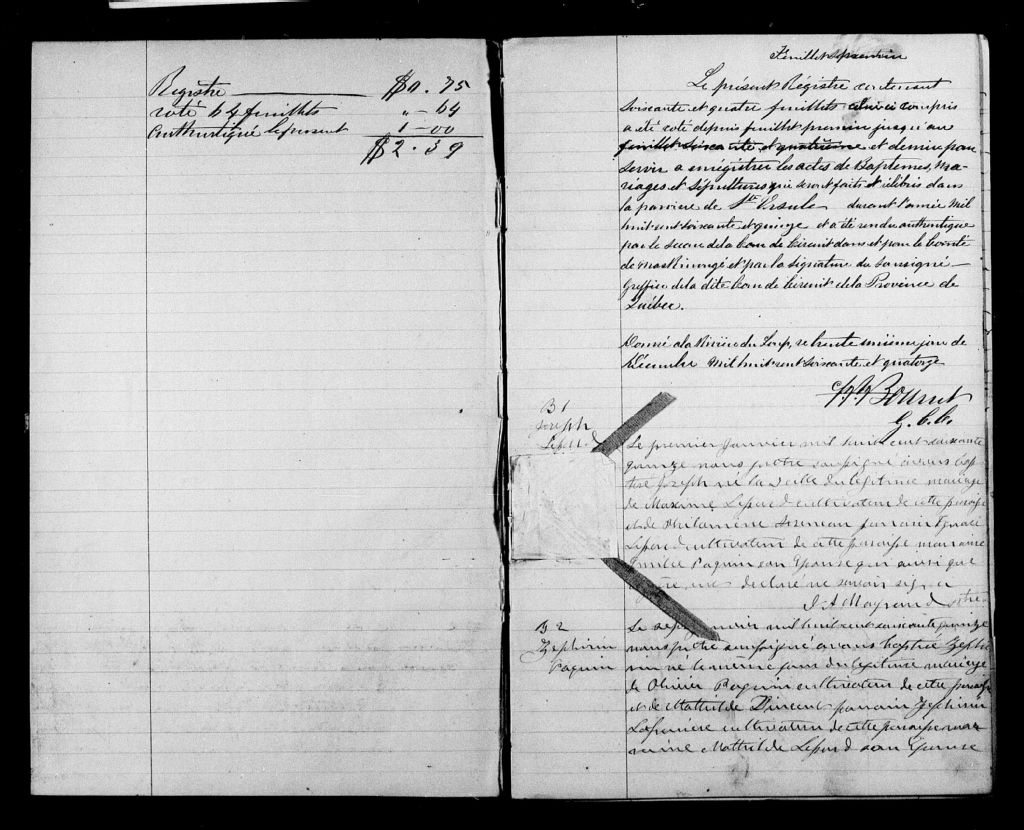 Registre $0.75
coté 64 feuillets " - 64
authentiqué le présent 1-00
$2.39
Feuillet premier
Le présent Régistre contenant
soixante et quatre feuillets celui ci compris
a été coté depuis feuillet premier jusqu'au
feuillet soixante et quatrième et dernier pour
servir a enrégistrer les actes de Baptemes, Ma-
riages et sépultures qui seront faits et célébrés dans
la paroisse de Ste Ursule durant l'année Mil
huit cent soixante et quinze et a été rendu authentique
par le sceau de la Cour de Circuit dans et pour le Comté
de Maskinongé et par la signature du sousigné
Greffier de la dite Cour de Circuit de la Province de
Québec.
Donné a la Rivière du Loup, ce trente unième jour de
Décembre Mil huit cent soixante et quatorze
G.C.C.
B 1
Joseph
Le premier Janvier mil huit cent soixante
quinze nous prêtre soussigné avons bap
tisé Joseph né la veille du légitime mariage
de Maxime Lepard cultivateur de cette paroisse
et de Philomène parrain Ignace
Lepard cultivateur de cette paroisse marraine
Emilie Paquin son épouse qui ainsi que
le père ont declaré ne savoir signer
J. A. Mayrand Ptre
B 2
Zéphirin
Paquin
Le sept Janvier mil huit cent soixante quinze
nous prêtre soussigné avons baptisé Zéphi
rin né le même jour du légitime mariage
de Olivier Paquin cultivateur de cette paroisse
et de Mathilde Vincent parrain Zéphirin
cultivateur de cette paroisse mar
raine Mathilde Lepard son épouse